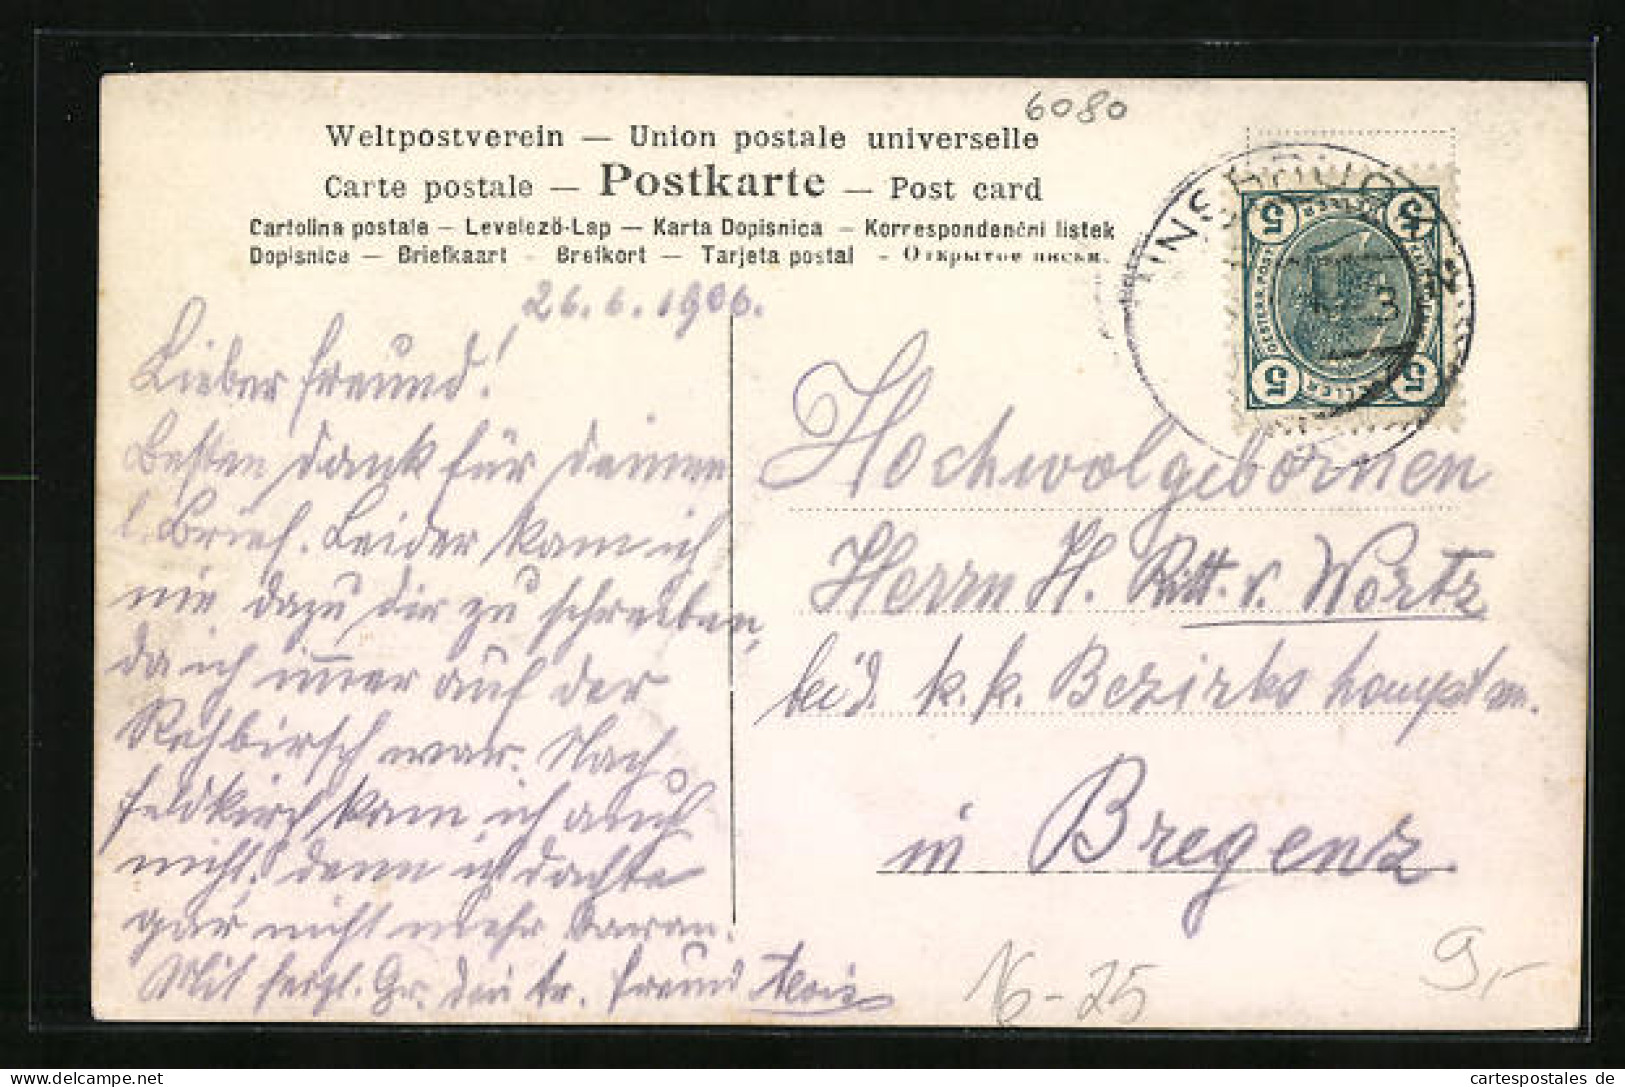 6080
Weltpostverein — Union postale universelle
Carte postale — Postkarte — Post card
Cartolina postale – Levelező-Lap — Karta Dopisnica – Korrespondenční listek
Dopisnice — Briefkaart - Brefkort — Tarjeta postal - Открытое писки.
26.6.1906.
Lieber Freund!
Besten Dank für deinen
l. Brief. Leider kam ich
nie dazu dir zu schreiben,
da ich immer auf der
Rehbirsch war. Nach
Feldkirch kam ich auch
nicht, denn ich dachte
gar nicht mehr daran.
Mit herzl. Gr. dein tr. Freund Alois
INSBRUCK 2
3
5 5
5 5
Hochwolgebornen
Herrn H. Ritt. v. Wortz
bei d. k. k. Bezirkshauptm.
in Bregenz
N6-25
9,-
cartespostales de